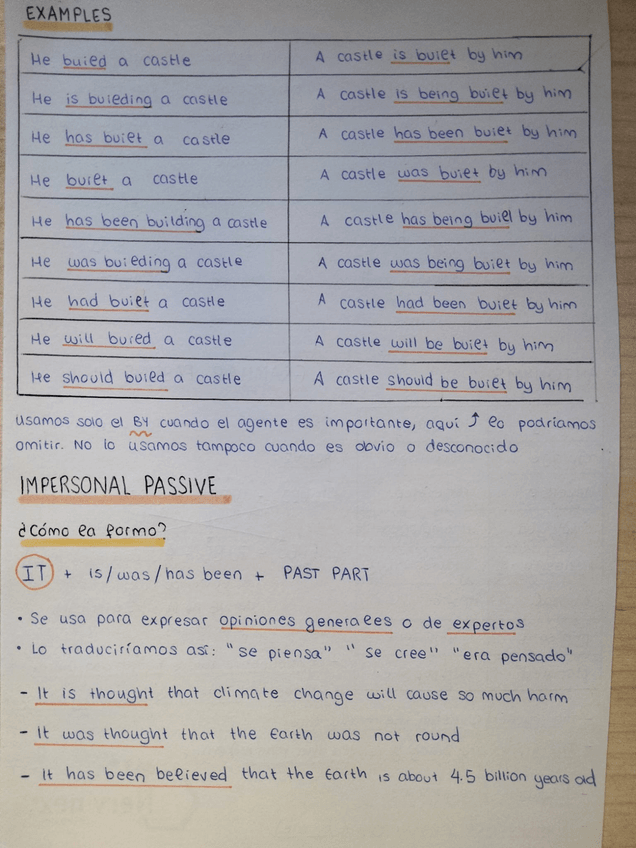 EXAMPLES
He build a castle A castle is built by him
He is building a castle A castle is being built by him
He has built a castle A castle has been built by him
He built a castle A castle was built by him
He has been building a castle A castle has being built by him
He was building a castle A castle was being built by him
He had built a castle A castle had been built by him
He will build a castle A castle will be built by him
He should build a castle A castle should be built by him
Usamos solo el BY cuando el agente es importante, aquí ⤴ lo podríamos
omitir. No lo usamos tampoco cuando es obvio o desconocido
IMPERSONAL PASSIVE
¿Cómo la formo?
IT + is/was/has been + PAST PART
• Se usa para expresar opiniones generales o de expertos
• Lo traduciríamos así: "se piensa" "se cree" "era pensado"
- It is thought that climate change will cause so much harm
- It was thought that the Earth was not round
- It has been believed that the Earth is about 4.5 billion years old